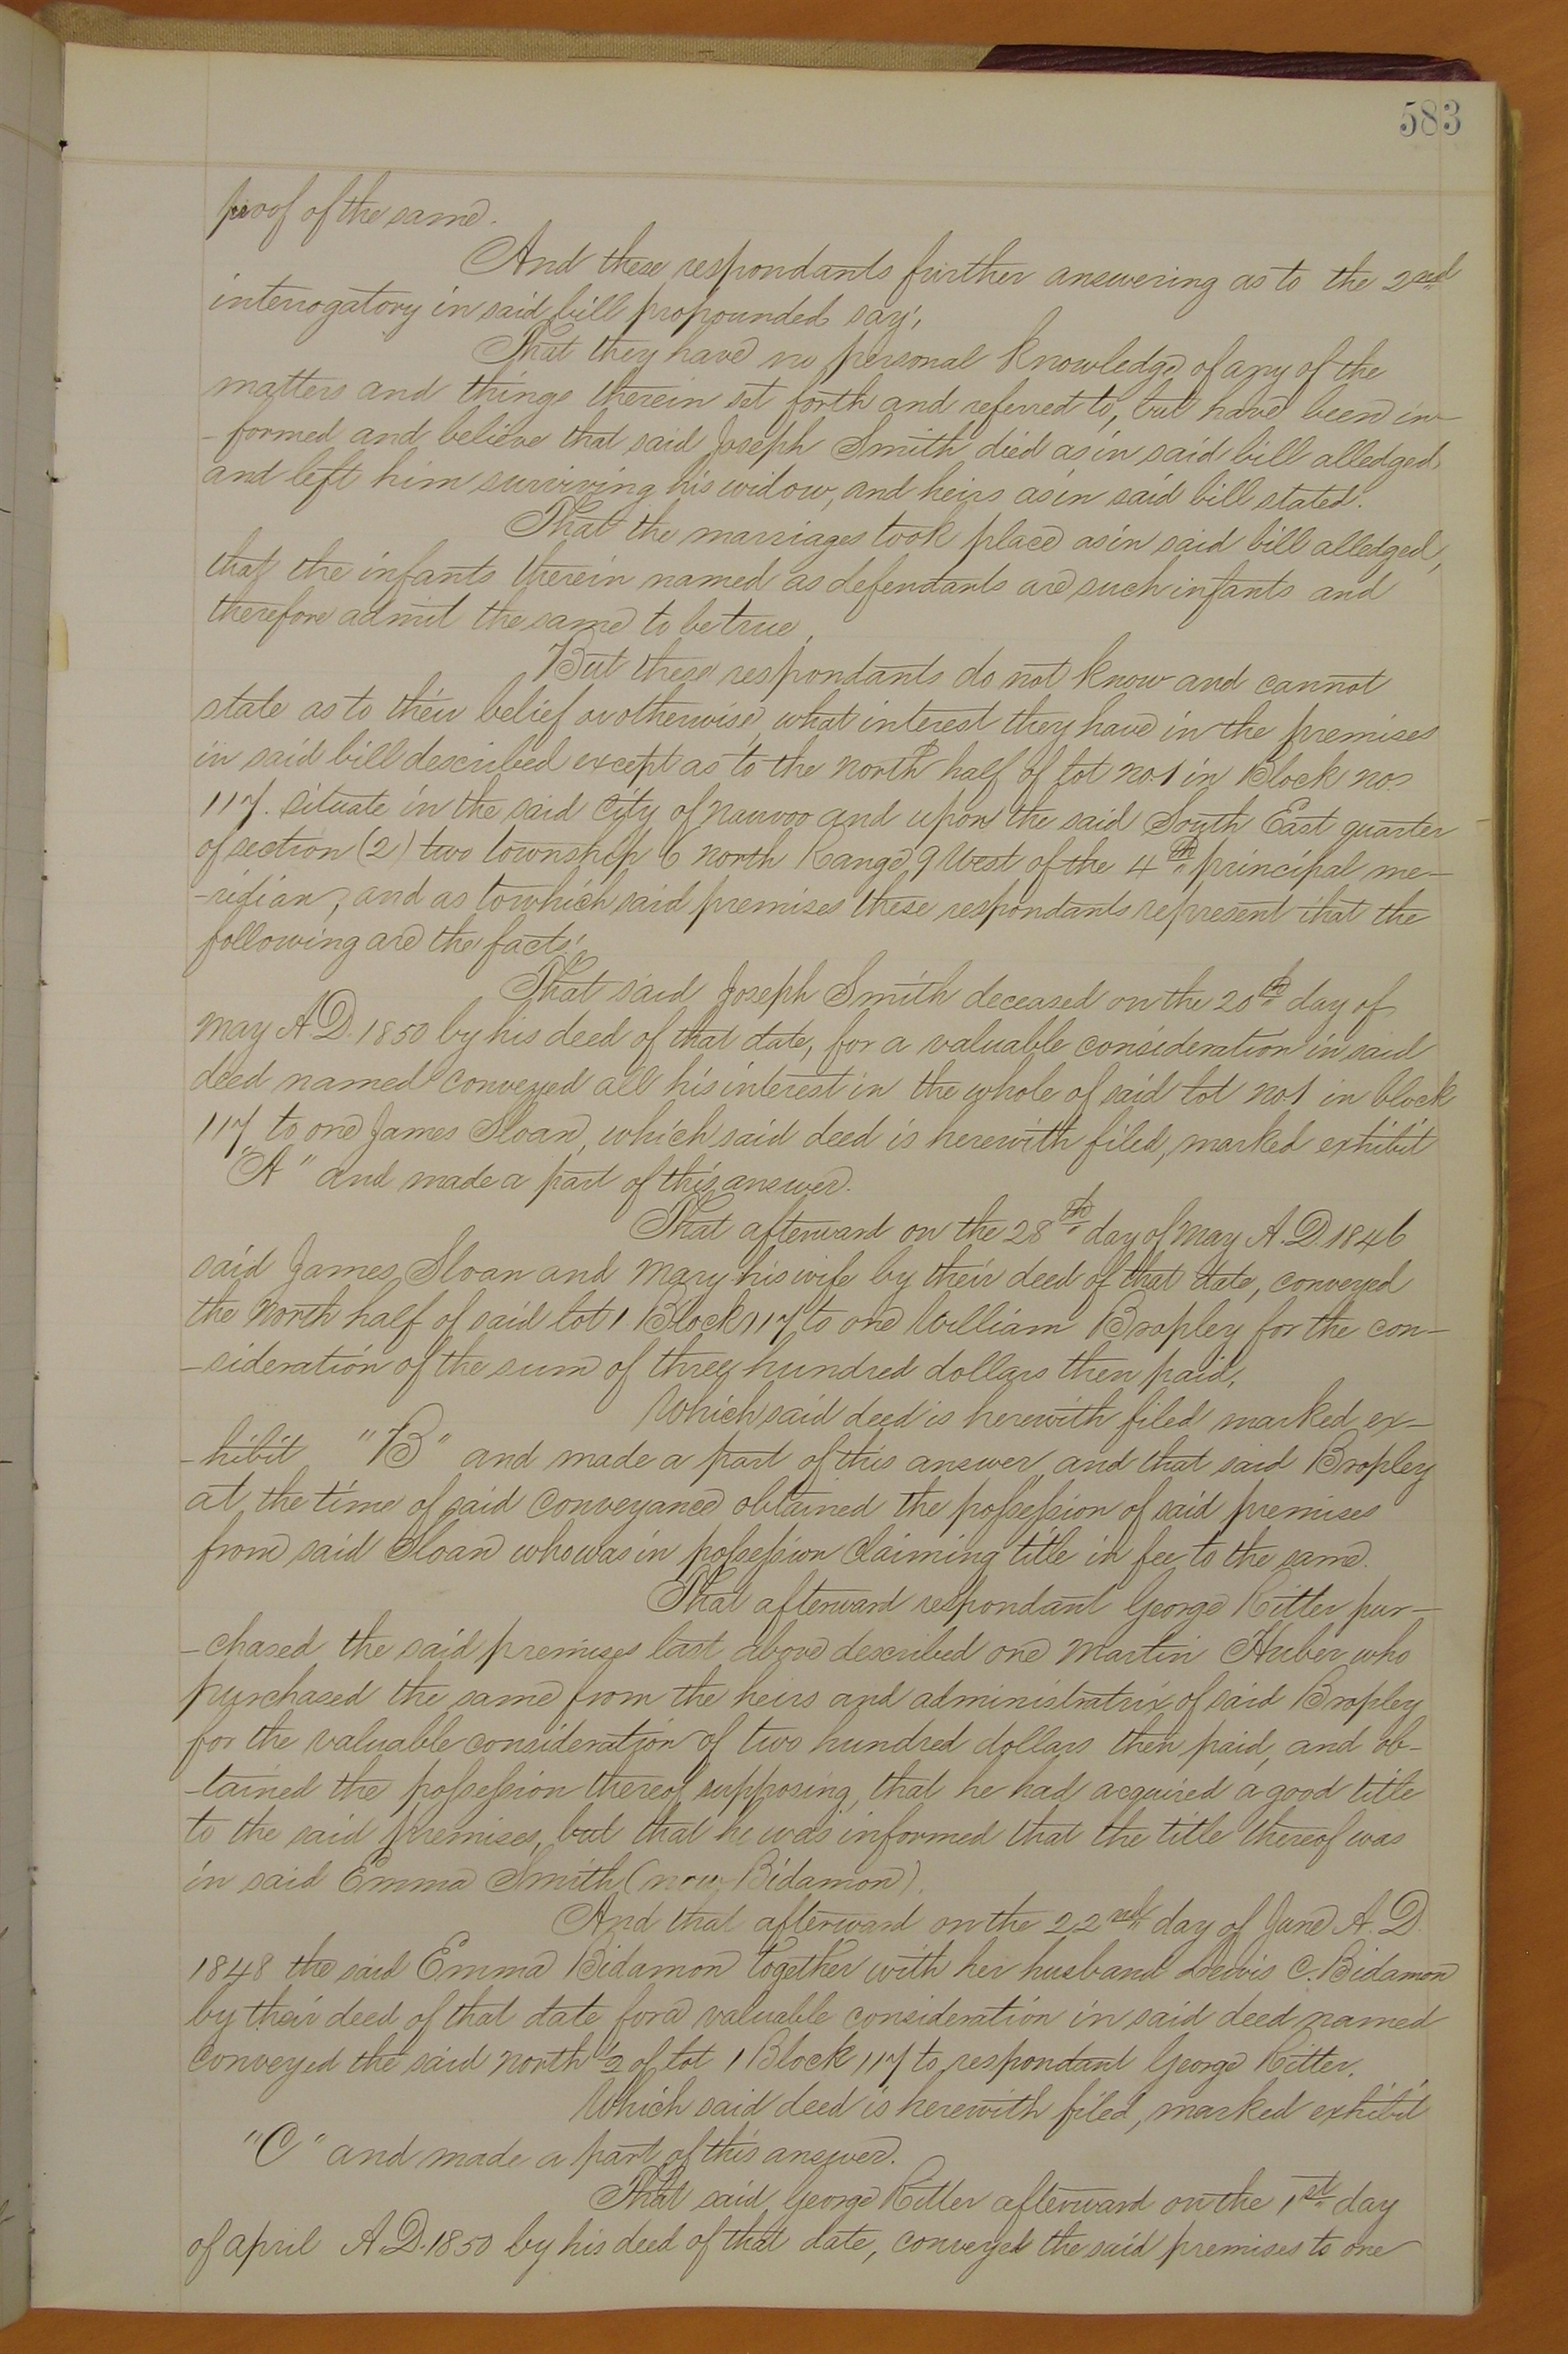 583
proof of the same.
And these respondants further answering as to the 2nd
interrogatory in said bill propounded say;
That they have no personal knowledge of any of the
matters and things therein set forth and referred to, but have been in-
-formed and believe that said Joseph Smith died as in said bill alledged,
and left him surviving his widow, and heirs as in said bill stated.
That the marriages took place as in said bill alledged,
that the infants therein named as defendants are such infants and
therefore admit the same to be true,
But these respondants do not know and cannot
state as to their belief or otherwise, what interest they have in the premises
in said bill described except as to the north half of lot no.1 in Block no.
117. situate in the said City of Nauvoo and upon the said South East quarter
of section (2) two township 6 north Range 9 West of the 4th principal me-
-ridian, and as to which said premises these respondants represent that the
following are the facts;
That said Joseph Smith deceased on the 20th day of
May A.D. 1850 by his deed of that date, for a valuable consideration in said
deed named conveyed all his interest in the whole of said lot no 1 in block
117 to one James Sloan, which said deed is herewith filed, marked exhibit
"A" and made a part of this answer.
That afterward on the 28th day of May A.D. 1846
said James Sloan and Mary his wife by their deed of that date, conveyed
the North half of said lot 1 Block 117 to one William Bropley for the con-
-sideration of the sum of three hundred dollars then paid,
Which said deed is herewith filed marked ex-
-hibit "B" and made a part of this answer, and that said Bropley
at the time of said conveyance obtained the possession of said premises
from said Sloan who was in possession claiming title in fee to the same.
That afterward respondant George Ritter pur-
-chased the said premises last above described one Martin Huber who
purchased the same from the heirs and administratrix of said Bropley
for the valuable consideration of two hundred dollars then paid, and ob-
-tained the possession thereof supposing, that he had acquired a good title
to the said premises, but that he was informed that the title thereof was
in said Emma Smith (now Bidamon).
And that afterward on the 22nd day of June A.D.
1848 the said Emma Bidamon together with her husband Lewis C. Bidamon
by their deed of that date for a valuable consideration in said deed named
conveyed the said north 1/2 of lot 1 Block 117 to respondant George Ritter.
Which said deed is herewith filed, marked exhibit
"C" and made a part of this answer.
That said George Ritter afterward on the 1st day
of april A.D. 1850 by his deed of that date, conveyed the said premises to one